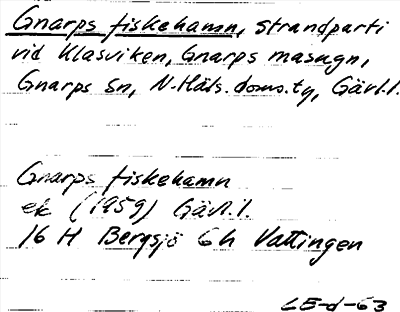 Gnarps fiskehamn, strandparti
vid Klasviken, Gnarps masugn,
Gnarps sn, N. Häls. doms. tg, Gävl.l.
Gnarps fiskehamn
ek (1959) Gävl.l.
16 H Bergsjö 6h Vattingen
LE-d-63